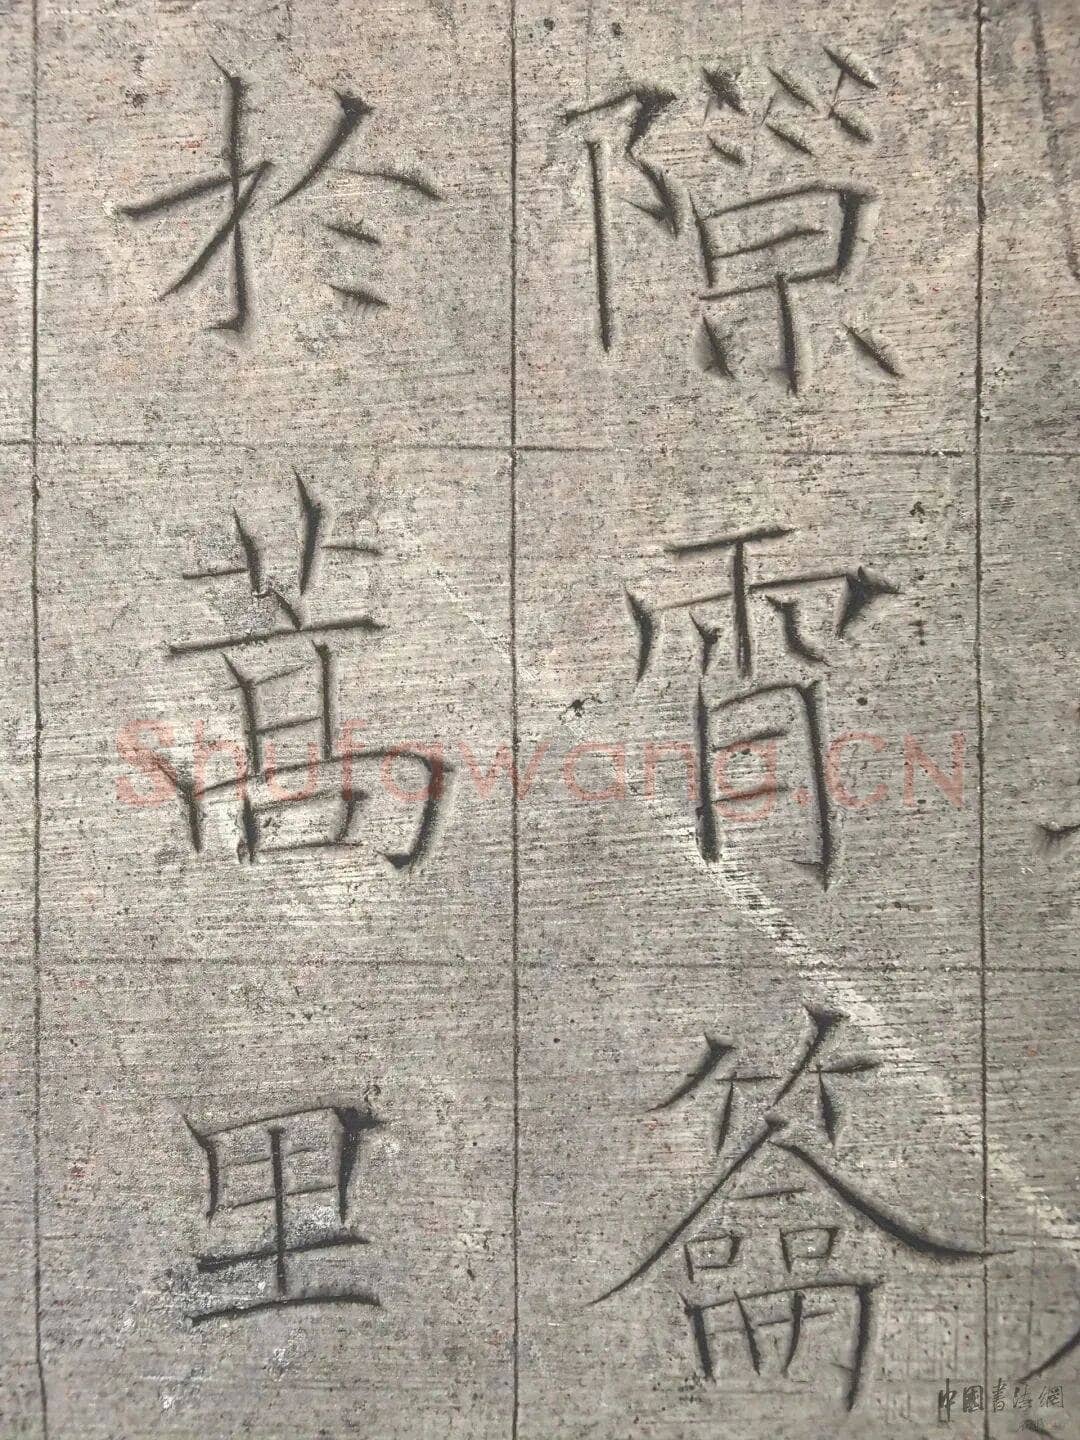 隙霄籥
於蒿里
Shufawang.CN
中國書法網